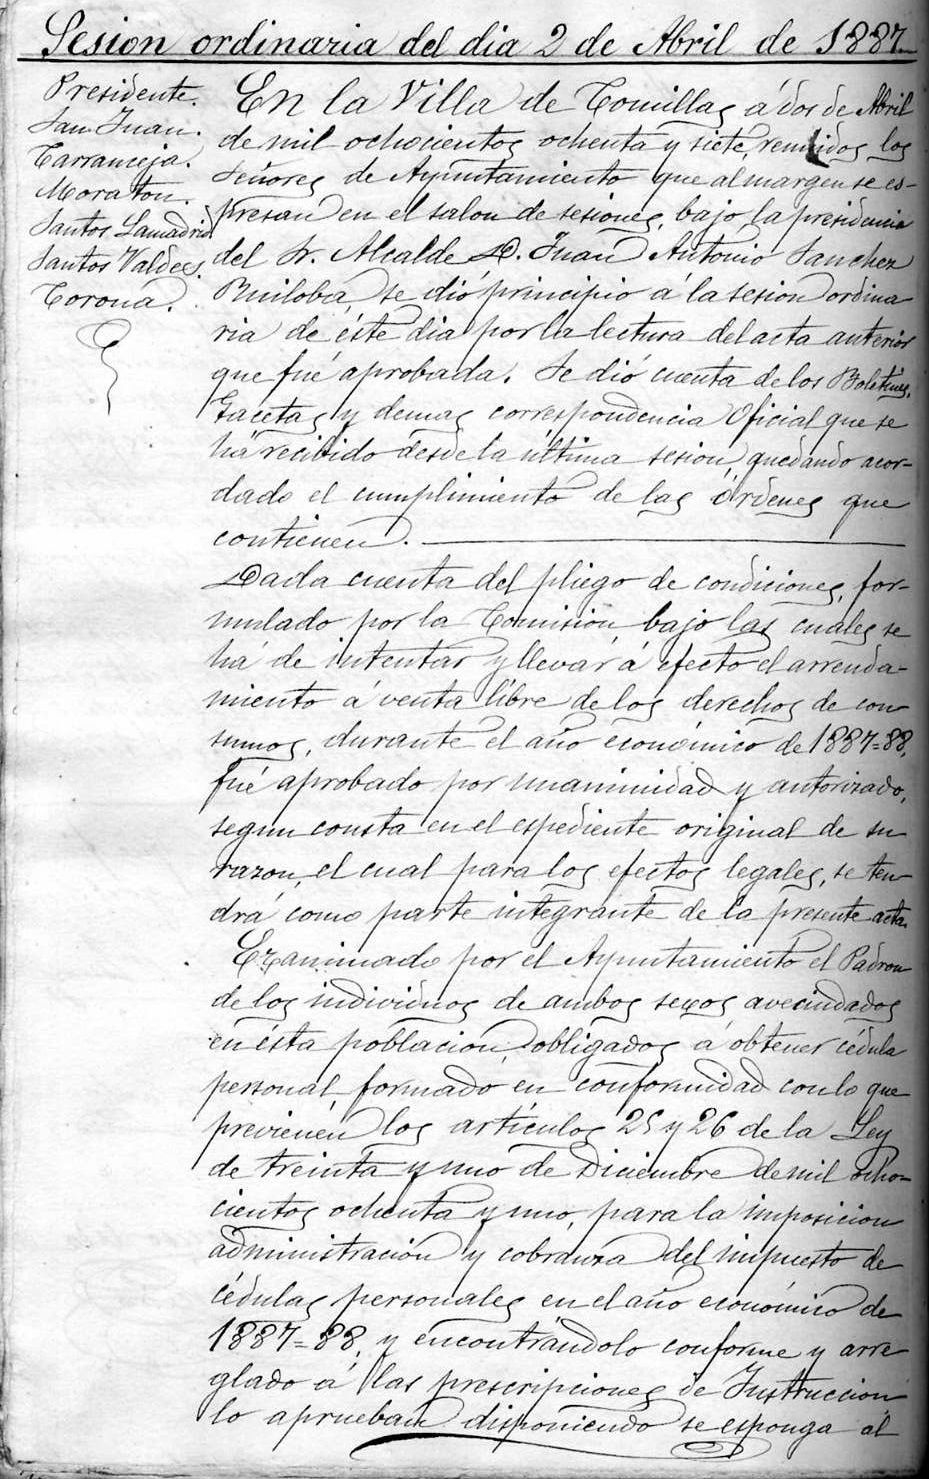 Sesion ordinaria del dia 2 de Abril de 1887.
Presidente.
San Juan.
Tarrameja.
Moraton.
Santos Lamadrid.
Santos Valdes.
Corona.
En la Villa de Comillas á dos de Abril
de mil ochocientos ochenta y siete, reunidos los
Señores de Ayuntamiento que al margen se es-
presan en el salon de sesiones, bajo la presidencia
del Sr. Alcalde D. Juan Antonio Sanchez
Ruiloba, se dió principio á la sesion ordina
ria de éste dia por la lectura del acta anterior
que fué aprobada. Se dió cuenta de los Boletines,
Gacetas y demas correspondencia Oficial que se
há recibido desde la última sesion, quedando acor-
dado el cumplimiento de las órdenes que
contienen.
Dada cuenta del pliego de condiciones, for-
mulado por la Comision bajo las cuales se
há de intentar y llevar á efecto el arrenda-
miento á venta libre de los derechos de con
sumos, durante el año económico de 1887=88,
fué aprobado por unanimidad y autorizado,
segun consta en el espediente original de su
razon, el cual para los efectos legales, se ten
drá como parte integrante de la presente acta.
Examinado por el Ayuntamiento el Padron
de los individuos de ambos sexos avecindados
en ésta poblacion, obligados á obtener cédula
personal, formado en conformidad con lo que
previenen los artículos 25 y 26 de la Ley
de treinta y uno de Diciembre de mil ocho-
cientos ochenta y uno, para la imposicion
administración y cobranza del impuesto de
cédulas personales en el año económico de
1887=88, y encontrándolo conforme y arre
glado á las prescripciones de Instruccion
lo aprueban disponiendo se esponga al